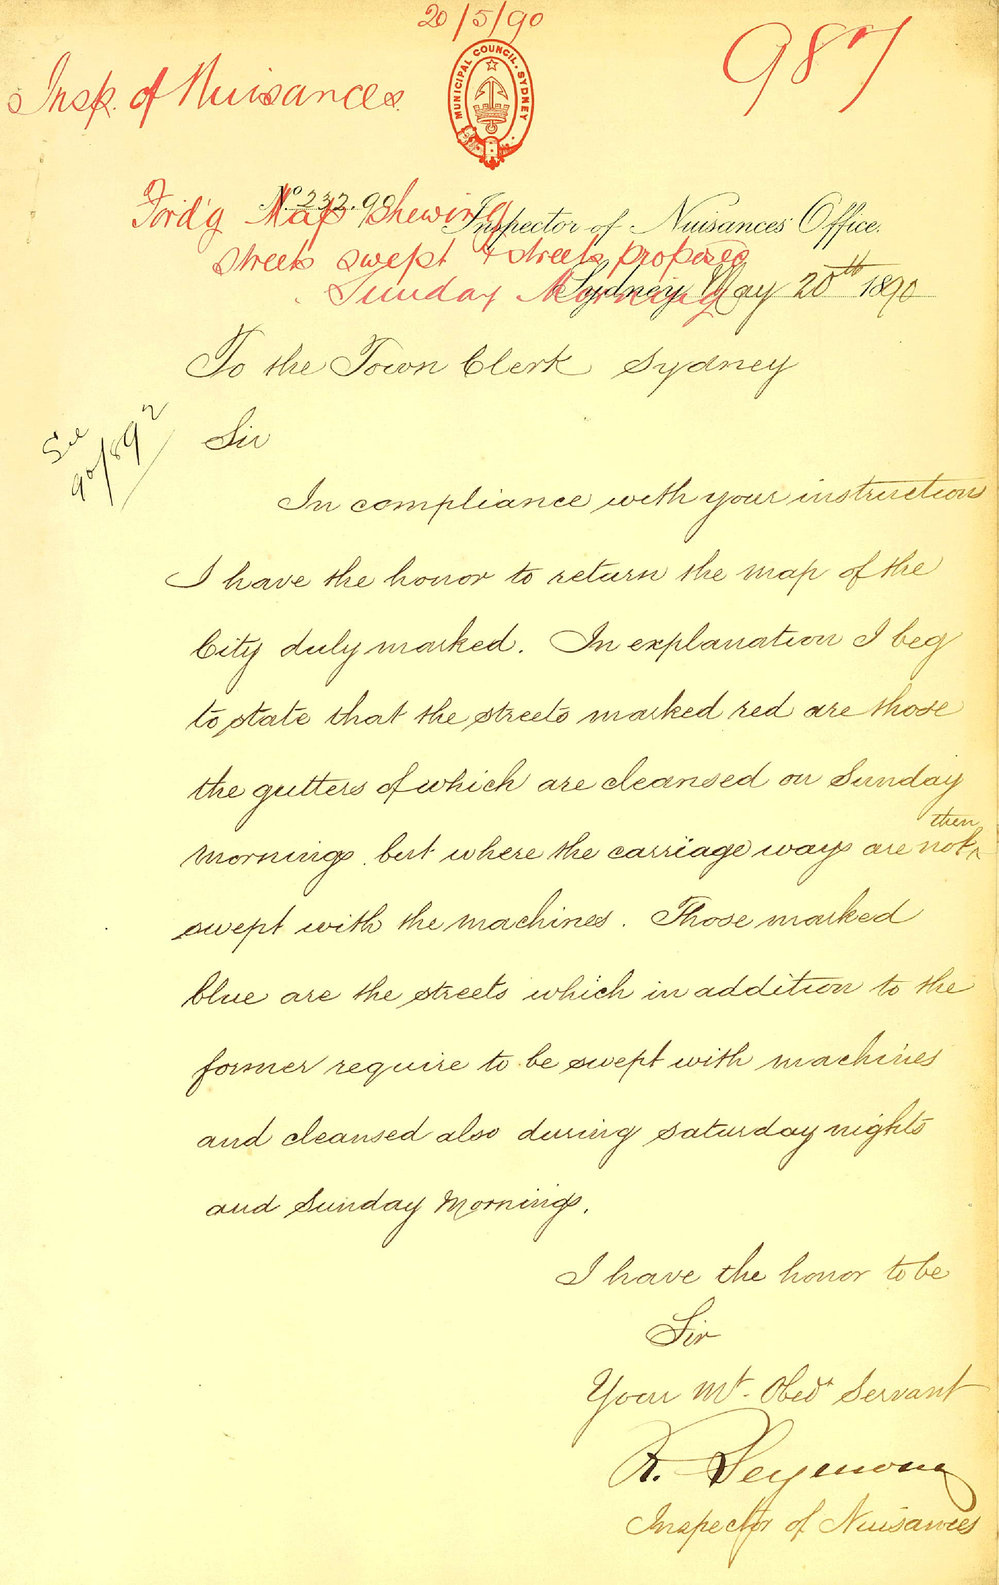 20/5/90
987
Insp. of Nuisances.
MUNICIPAL COUNCIL. SYDNEY
No. 232.90
Ford'g Map Shewing
Inspector of Nuisances' Office.
streets swept & streets proposed
Sunday Morning
Sydney, May 20th 1890
To the Town Clerk Sydney
See
90/892
Sir
In compliance with your instructions
I have the honor to return the map of the
City duly marked. In explanation I beg
to state that the streets marked red are those
the gutters of which are cleansed on Sunday
mornings but where the carriage ways are not then
swept with the machines. Those marked
blue are the streets which in addition to the
former require to be swept with machines
and cleansed also during Saturday nights
and Sunday Mornings.
I have the honor to be
Sir
Your Mt. Obedt Servant
R. Seymour
Inspector of Nuisances